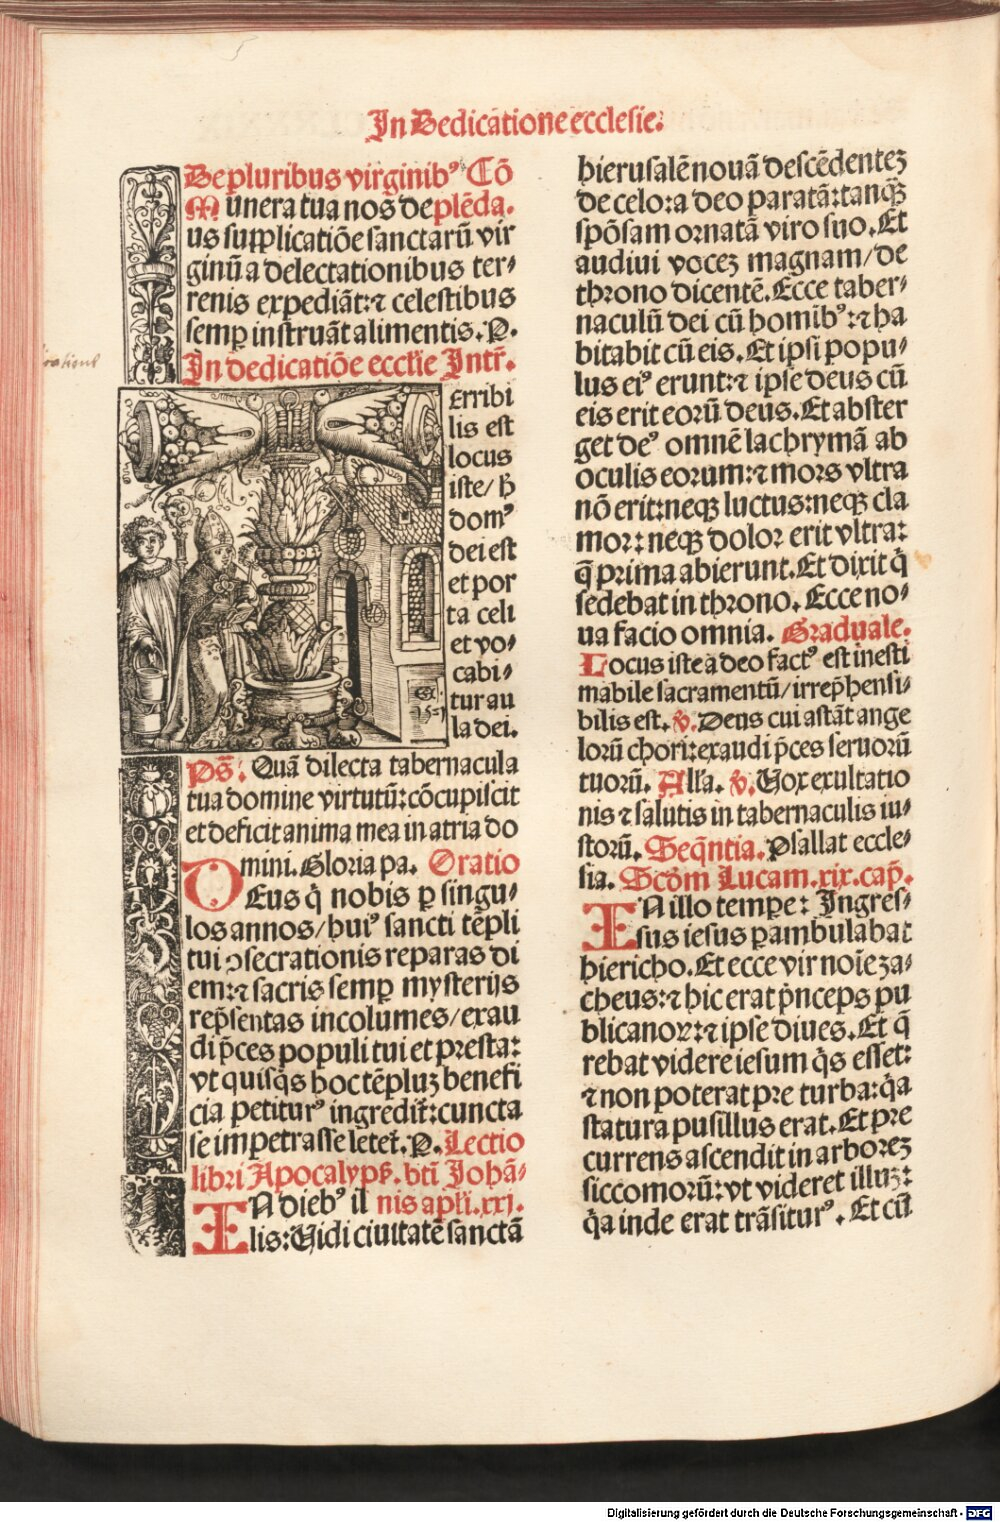 In Dedicatione ecclesie.
De pluribus virginibꝰ Cō
Munera tua nos deplēda.
us supplicatiōe sanctarū vir
ginū a delectationibus ter⸗
renis expediāt: ⁊ celestibus
semꝑ instruāt alimentis. P.
In dedicatiōe eccl'ie Intr̄.
Erribi
lis est
locus
iste/ h̄
domꝰ
dei est
et por
ta celi
et vo⸗
cabi⸗
tur au
la dei.
1521
Ps̄. Quā dilecta tabernacula
tua domine virtutū: cōcupiscit
et deficit anima mea in atria do
mini. Gloria pa. Oratio
DEus q̄ nobis ꝑ singu⸗
los annos/ huiꝰ sancti tēpli
tui ↄsecrationis reparas di
em: ⁊ sacris semꝑ mysterijs
rep̄sentas incolumes/ exau
di p̄ces populi tui et presta:
vt quisq̄s hoc tēpluꝫ benefi
cia petiturꝰ ingredit᷑: cuncta
se impetrasse letet᷑. P. Lectio
libri Apocalyps̄. bt̄i Johā⸗
IN diebꝰ il nis apl'i. xxj.
lis: Vidi ciuitatē sanctā
hierusalē nouā descēdenteꝫ
de celo: a deo paratā: tanqꝫ
spōsam ornatā viro suo. Et
audiui voceꝫ magnam/ de
throno dicentē. Ecce taber⸗
naculū dei cū homibꝰ: ⁊ ha
bitabit cū eis. Et ipsi popu⸗
lus eiꝰ erunt: ⁊ ipse deus cū
eis erit eorū deus. Et abster
get deꝰ omnē lachrymā ab
oculis eorum: ⁊ mors vltra
nō erit: neqꝫ luctus: neqꝫ cla
mor: neqꝫ dolor erit vltra:
q̄ prima abierunt. Et dixit q̄
sedebat in throno. Ecce no⸗
ua facio omnia. Graduale.
Locus iste a deo factꝰ est inesti
mabile sacramentū/ irrep̄hensi⸗
bilis est. ℣. Deus cui astāt ange
lorū chori: exaudi p̄ces seruorū
tuorū. All'a. ℣. Vox exultatio
nis ⁊ salutis in tabernaculis iu⸗
storū. Seq̄ntia. Psallat eccle⸗
sia. Scd̄m Lucam. xix. cap̄.
IN illo tempe: Ingres⸗
sus iesus ꝑambulabat
hiericho. Et ecce vir noīe za⸗
cheus: ⁊ hic erat p̄nceps pu
blicanoꝝ: ⁊ ipse diues. Et q̄
rebat videre iesum q̄s esset:
⁊ non poterat pre turba: q̄a
statura pusillus erat. Et pre
currens ascendit in arboreꝫ
siccomorū: vt videret illuꝫ:
q̄a inde erat trāsiturꝰ. Et cū
Digitalisierung gefördert durch die Deutsche Forschungsgemeinschaft - DFG